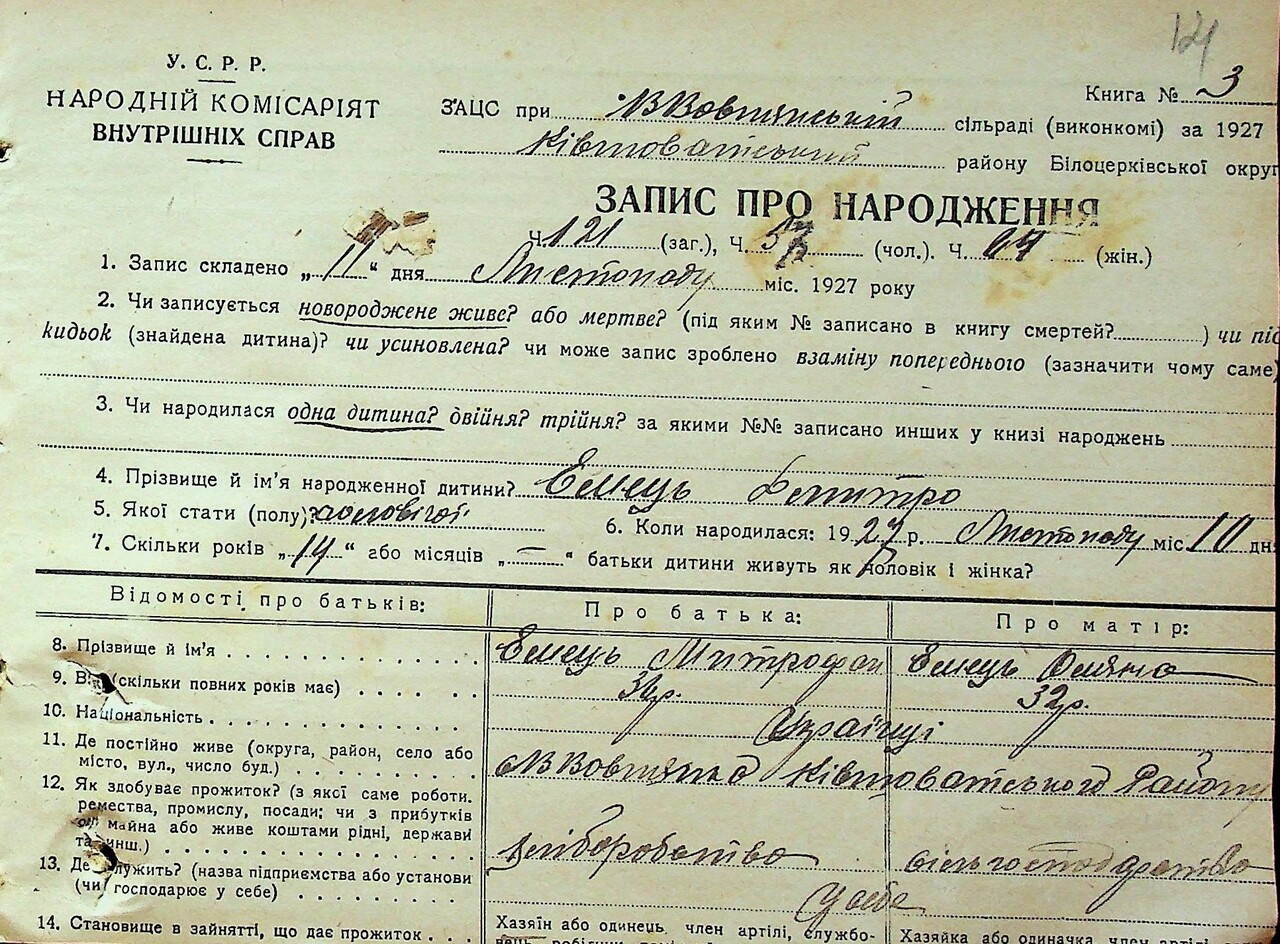 124
У. С. Р. Р.
НАРОДНІЙ КОМІСАРІЯТ
ВНУТРІШНІХ СПРАВ
Книга № 3
ЗАЦС при ВВовнянській сільраді (виконкомі) за 1927
Ківшоватський району Білоцерківської округ
ЗАПИС ПРО НАРОДЖЕННЯ
Ч 121 (заг.), Ч. 57 (чол.). Ч. 64 (жін.)
1. Запис складено „ 11 “ дня Листопаду міс. 1927 року
2. Чи записується новороджене живе? або мертве? (під яким № записано в книгу смертей? ) чи під
кидьок (знайдена дитина)? чи усиновлена? чи може запис зроблено взаміну попереднього (зазначити чому саме)
3. Чи народилася одна дитина? двійня? трійня? за якими №№ записано инших у книзі народжень
4. Прізвище й ім'я народженної дитини? Емець Дмитро
5. Якої стати (полу)? чоловічої 6. Коли народилась: 1927 р. Листопаду міс 10 дн
7. Скільки років „ 14 “ або місяців „ — “ батьки дитини живуть як чоловік і жінка?
Відомості про батьків: Про батька: Про матір:
8. Прізвище й ім'я Емець Митрофан Емець Оляна
9. Вік (скільки повних років має) 32р.
10. Національність Українці
11. Де постійно живе (округа, район, село або
місто, вул., число буд.) Ківшоватського Району
12. Як здобуває прожиток? (з якої саме роботи.
ремества, промислу, посади; чи з прибутків
майна або живе коштами рідні, держави
та инш.) хліборобство сільгосподарство
13. Де служить? (назва підприємства або установи
(чи господарює у себе) У себе
14. Становище в зайнятті, що дає прожиток Хазяїн або одинець, член артілі, службо- Хазяйка або одиначка, член артілі